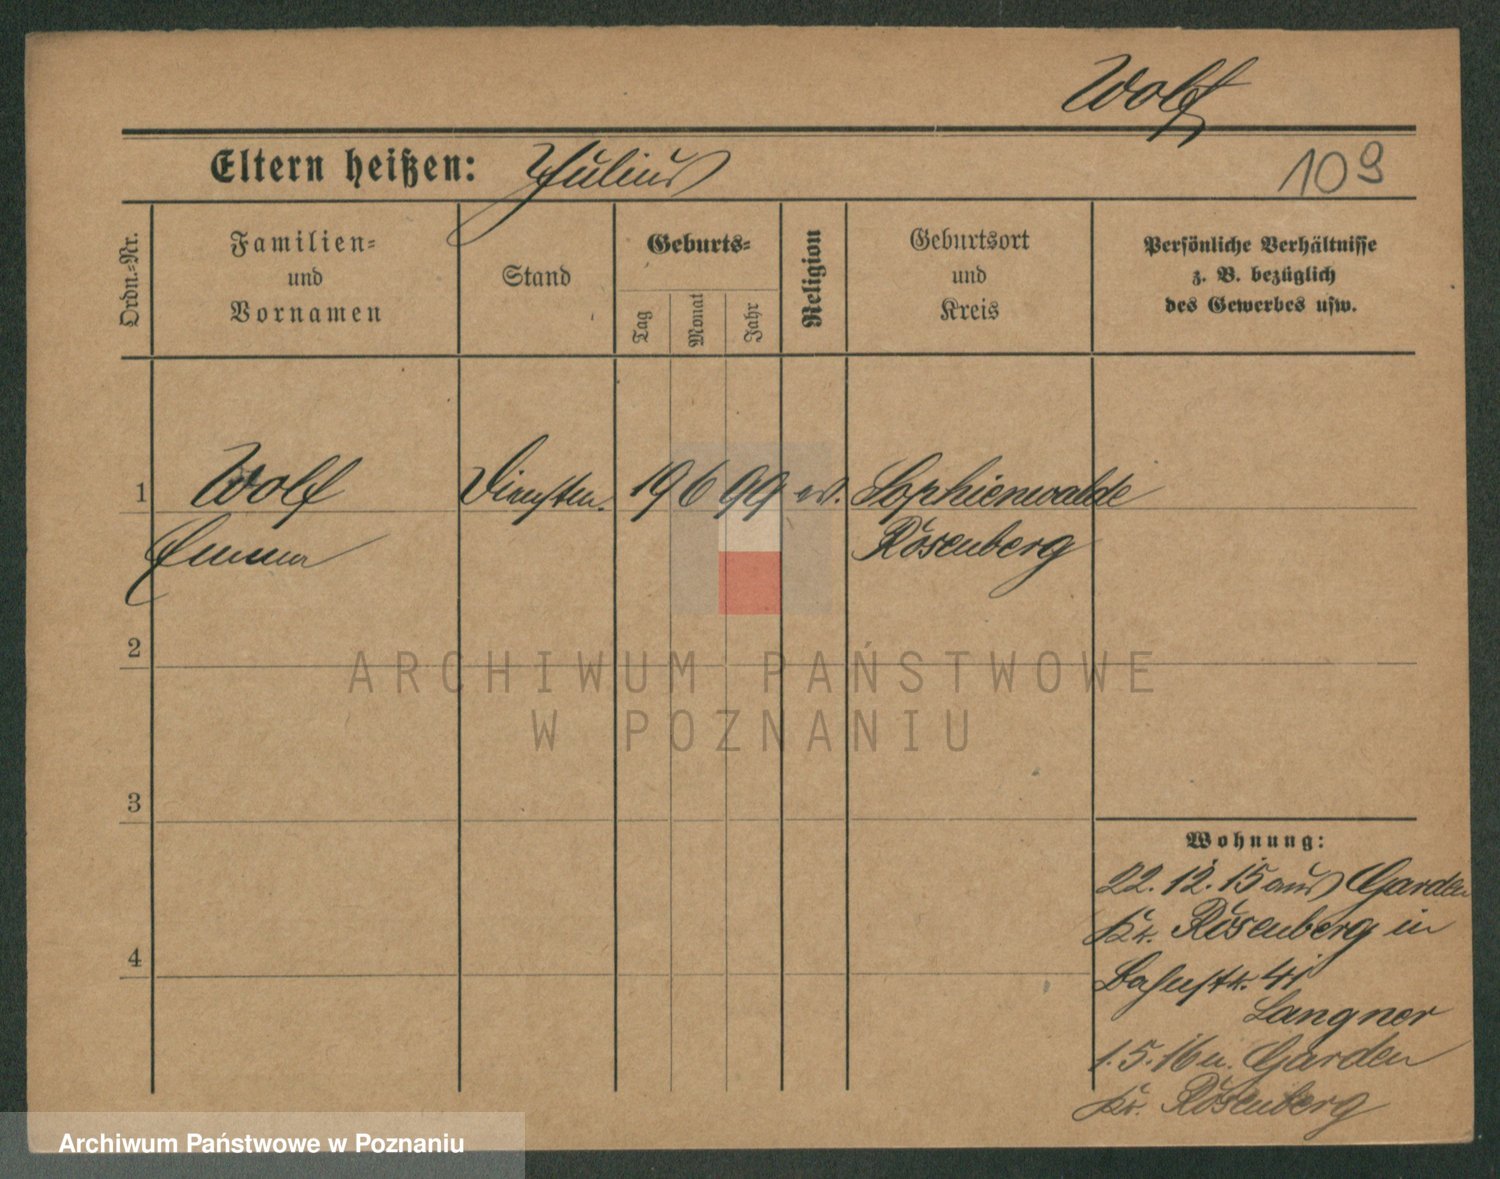 Wolf
Eltern heißen: Julius
109
Ordn.-Nr.
Familien-
und
Vornamen
Stand
Geburts-
Tag
Monat
Jahr
Religion
Geburtsort
und
Kreis
Persönliche Verhältnisse
z. B. bezüglich
des Gewerbes usw.
1
Wolf
Dienstm.
19 6 99
ev.
Sophienwalde
Emma
Rosenberg
2
ARCHIWUM PAŃSTWOWE
W POZNANIU
3
4
Wohnung:
22.12.15 aus Garden
Kr. Rosenberg in
Bahnstr.
Langner
1.5.16 n. Garden
Kr. Rosenberg
Archiwum Państwowe w Poznaniu